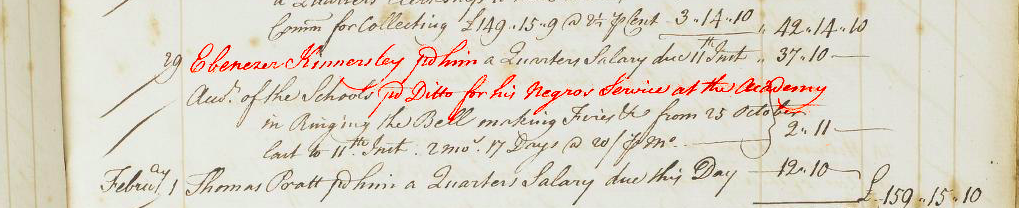 a Quarters
Comm for Collecting £149..15..9 @ 2½ ⅌ Cent 3..14..10 " 42..14..10
29 Ebenezer Kinnersley pd him a Quarters Salary due 11th Inst " 37..10 —
Audr. of the Schools pd Ditto for his Negros Service at the Academy
in Ringing the Bell making Fires &c from 25 October
last to 11th Inst. 2 mos. 17 Days @ 20/ ⅌ Mo. 2..11 —
Februay 1 Thomas Pratt pd him a Quarters Salary due this Day 12..10
£159..15..10